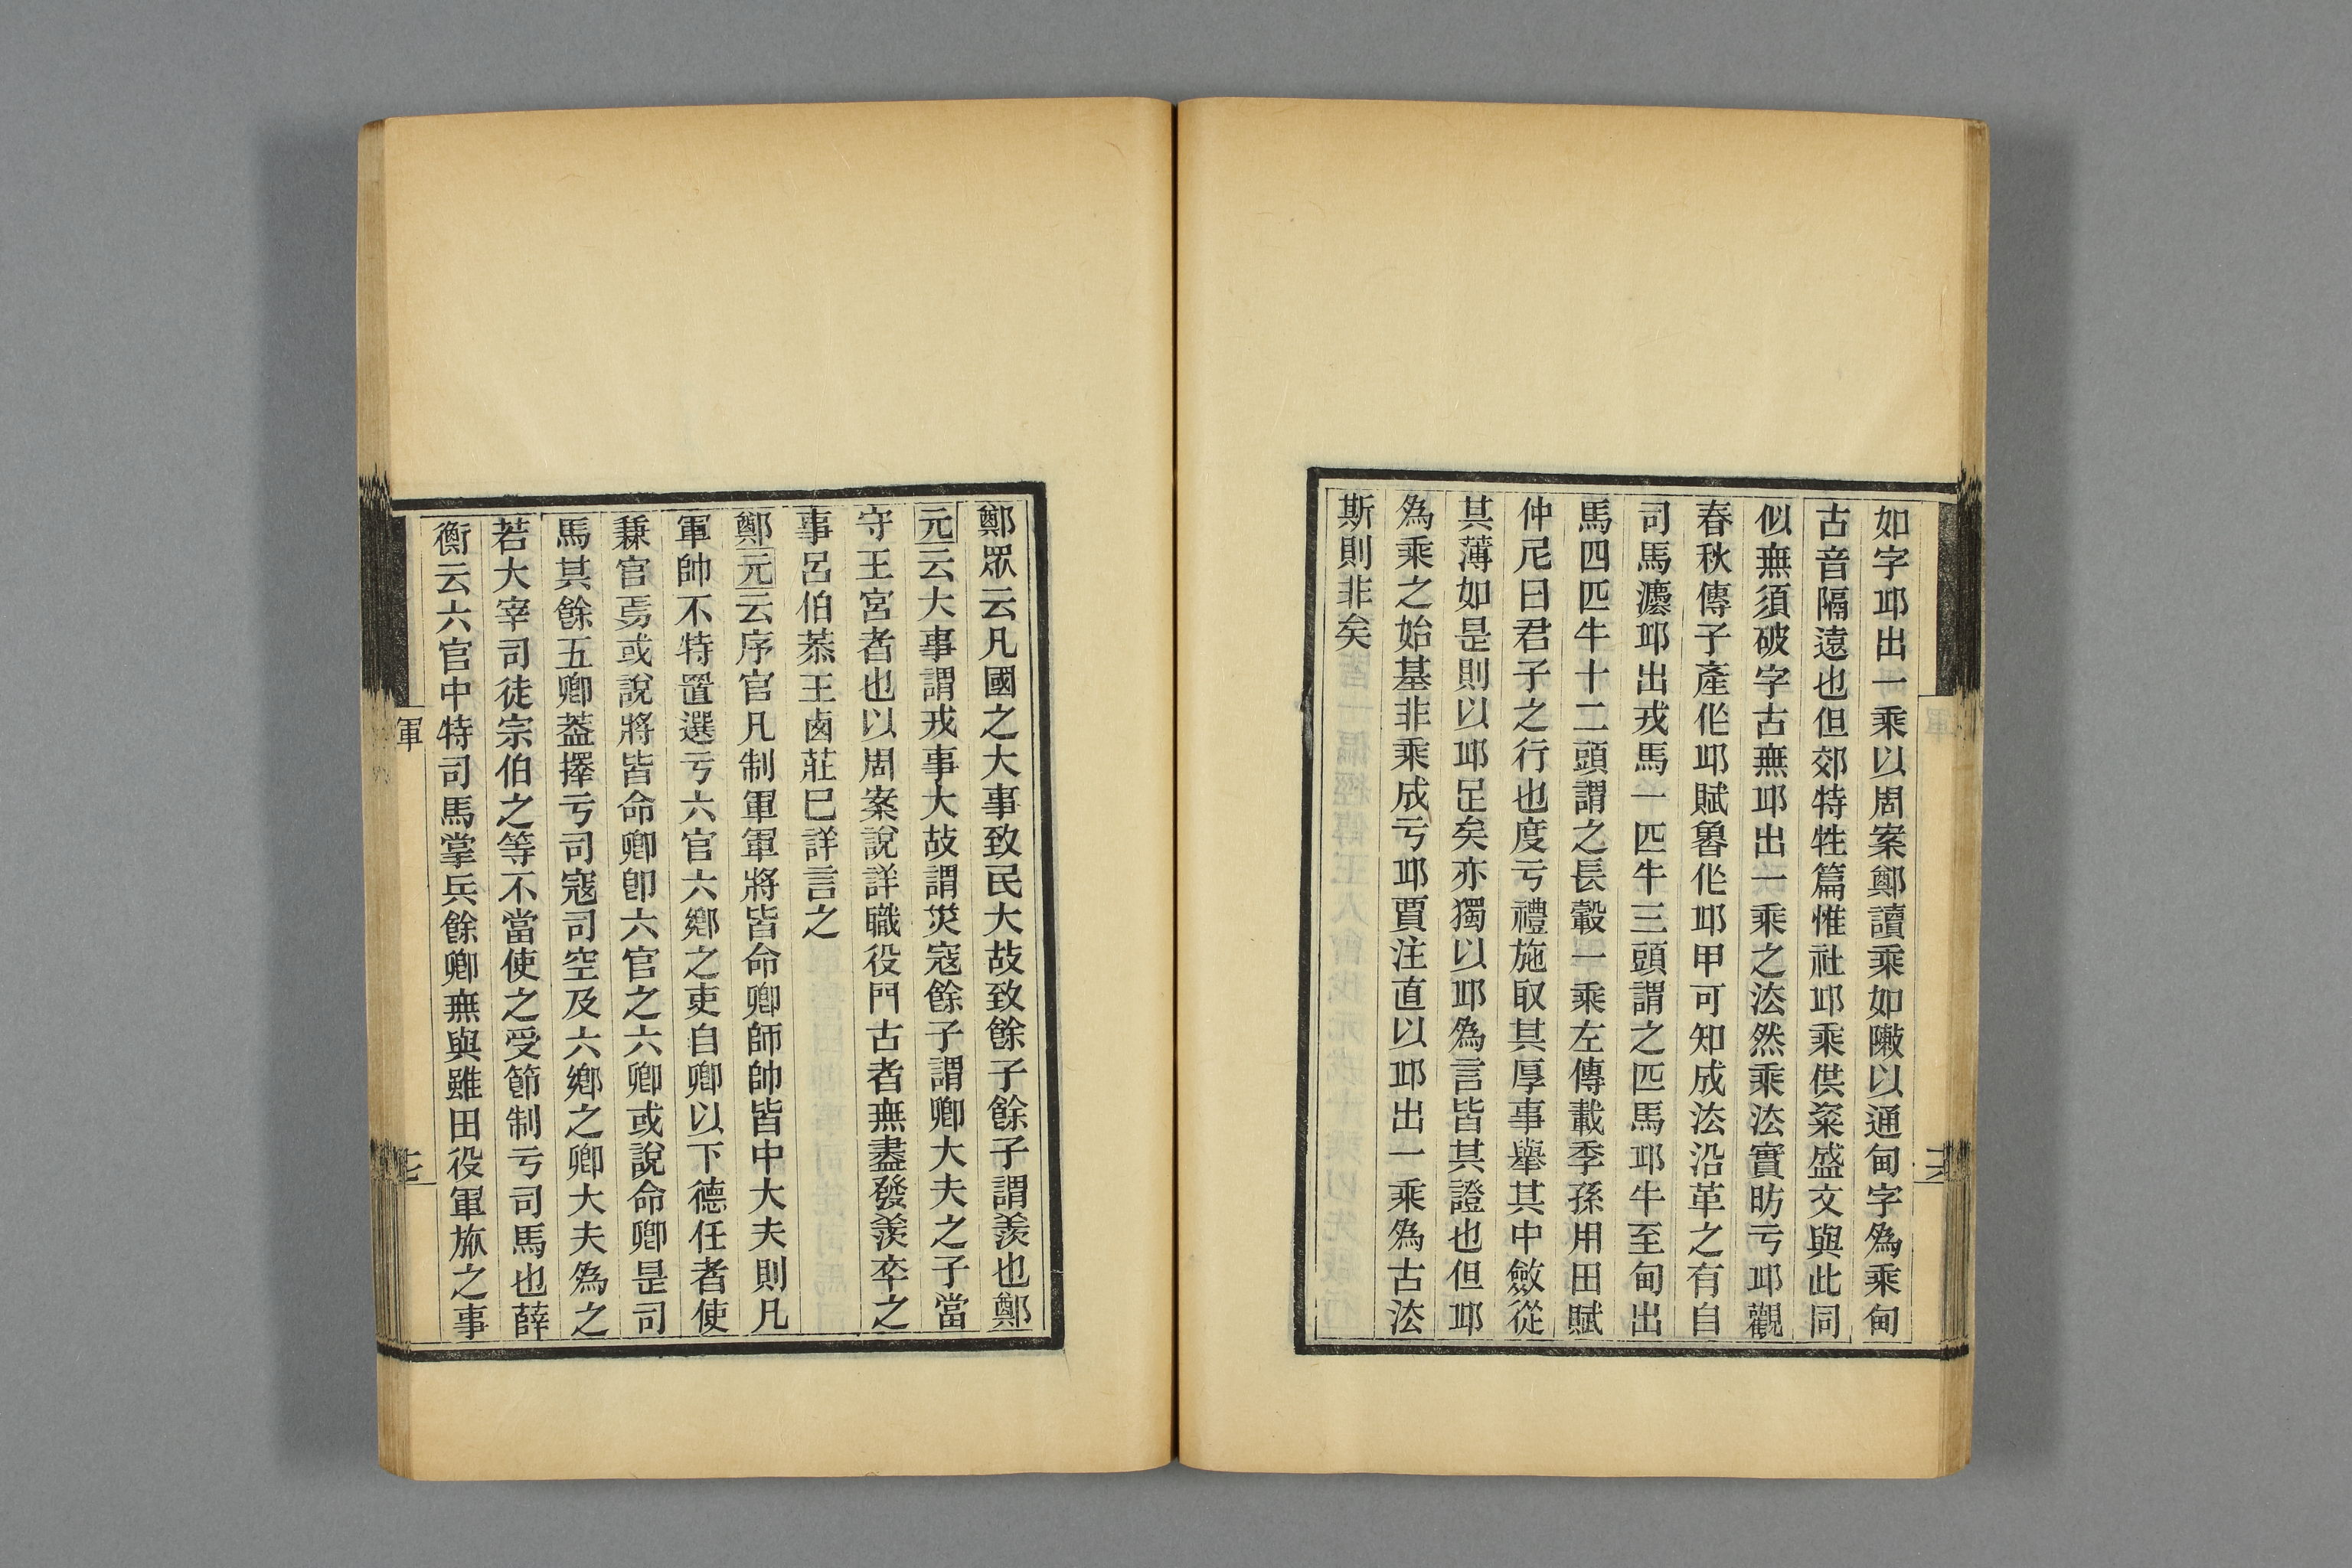 如字邱出一乘以周案鄭讀乘如敶以通甸字為乘甸
古音隔遠也但郊特牲篇惟社邱乘供粢盛文與此同
似無須破字古無邱出一乘之法然乘法實昉亏邱觀
春秋傳子產作邱賦魯作邱甲可知成法沿革之有自
司馬灋邱出戎馬一匹牛三頭謂之匹馬邱牛至甸出
馬四匹牛十二頭謂之長轂一乘左傳載季孫用田賦
仲尼曰君子之行也度亏禮施取其厚事舉其中斂從
其薄如是則以邱足矣亦獨以邱為言皆其證也但邱
為乘之始基非乘成亏邱賈注直以邱出一乘為古法
斯則非矣
鄭眾云凡國之大事致民大故致餘子餘子謂羨也鄭
元云大事謂戎事大故謂災寇餘子謂卿大夫之子當
守王宮者也以周案說詳職役門古者無盡發羨卒之
事呂伯恭王鹵莊已詳言之
鄭元云序官凡制軍軍將皆命卿師帥皆中大夫則凡
軍帥不特置選亏六官六鄉之吏自卿以下德任者使
兼官焉或說將皆命卿卽六官之六卿或說命卿是司
馬其餘五卿蓋擇亏司寇司空及六鄉之卿大夫為之
若大宰司徒宗伯之等不當使之受節制亏司馬也薛
衡云六官中特司馬掌兵餘卿無與雖田役軍旅之事
軍